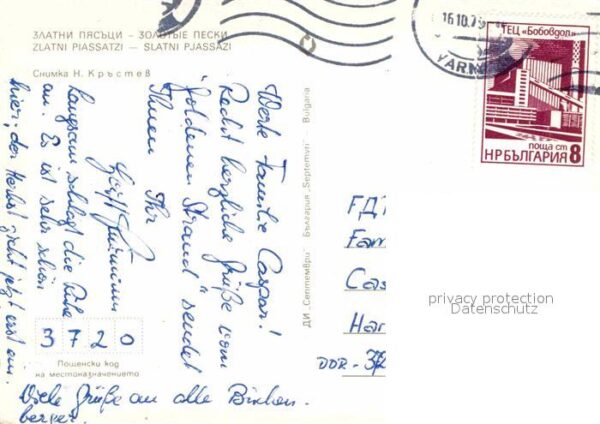 ЗЛАТНИ ПЯСЪЦИ — ЗОЛОТЫЕ ПЕСКИ
ZLATNI PIASSATZI — SLATNI PJASSAZI
Снимка Н. Кръстев
Werte Familie Caspar!
Recht herzliche Grüße vom
"Goldenen Strand" sendet
Ihnen Ihr
Langsam schlägt die Ruhe
an. Es ist sehr schön
hier, der Herbst zieht jetzt erst ein.
3720
Пощенски код
на местоназначението
Viele Grüße an alle Birken-
berger.
ДИ „Септември" България „Septemvri" Bulgaria
16.10.7
VARN
ТЕЦ „Бобовдол"
поща ст
НРБЪЛГАРИЯ 8
ГДР
Fam
Cas
Har
DDR - 372
privacy protection
Datenschutz